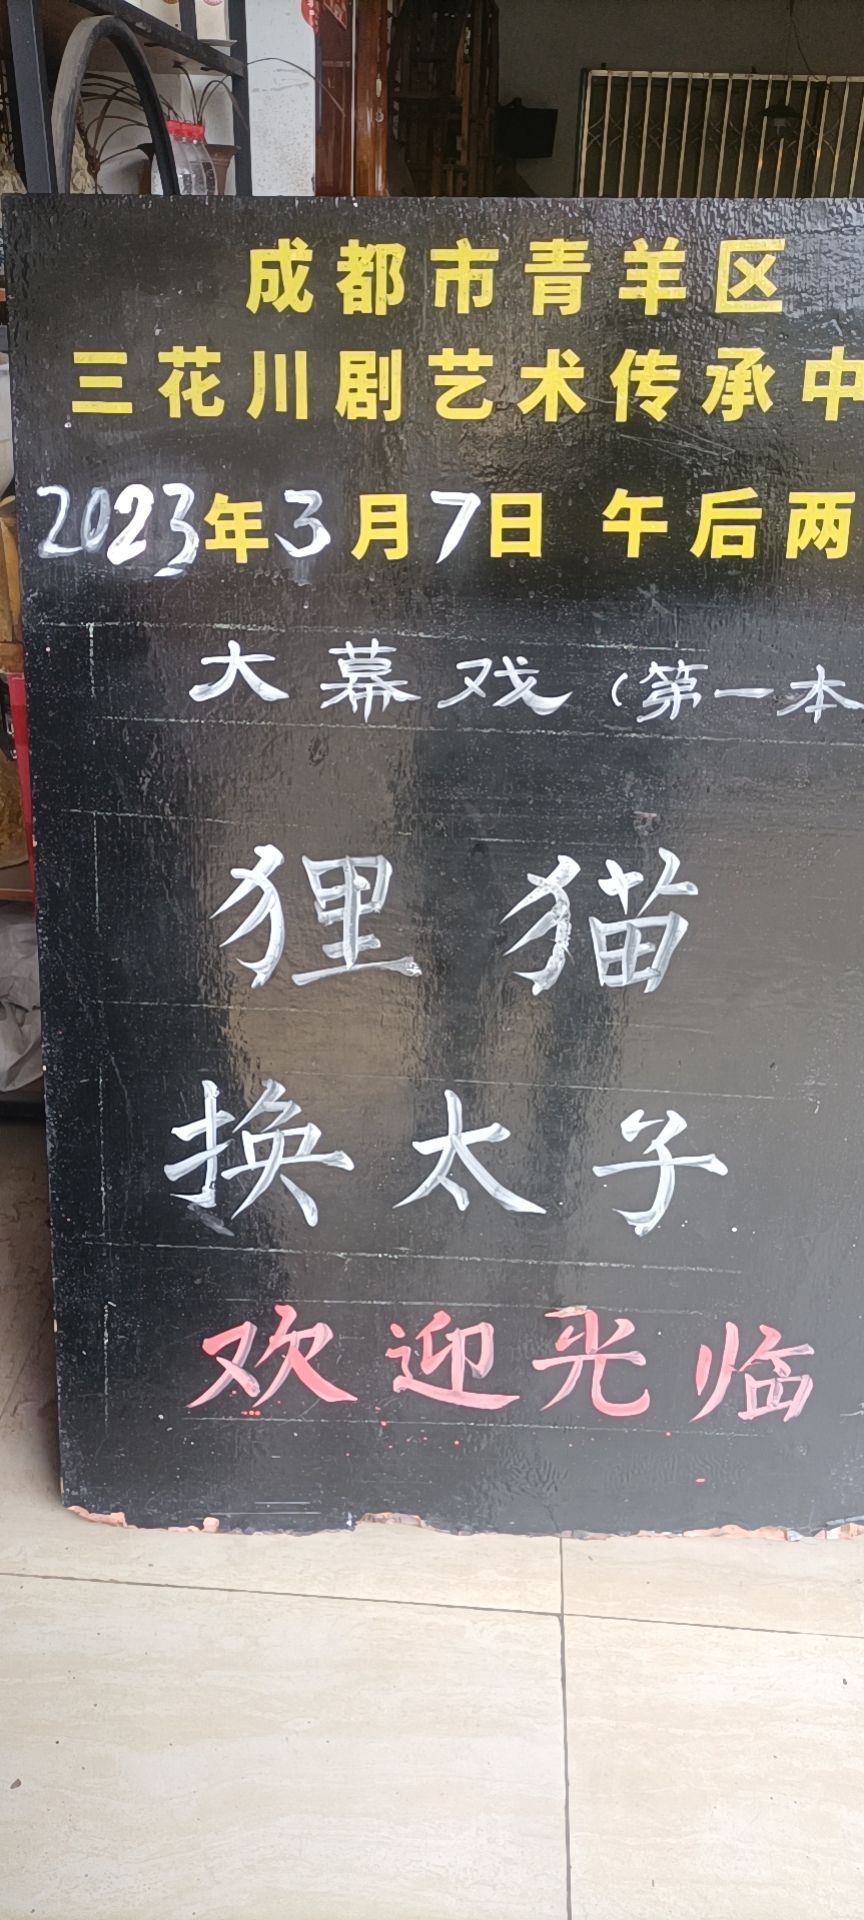 成都市青羊区
三花川剧艺术传承中
2023年3月7日 午后两
大幕戏（第一本
狸猫
换太子
欢迎光临